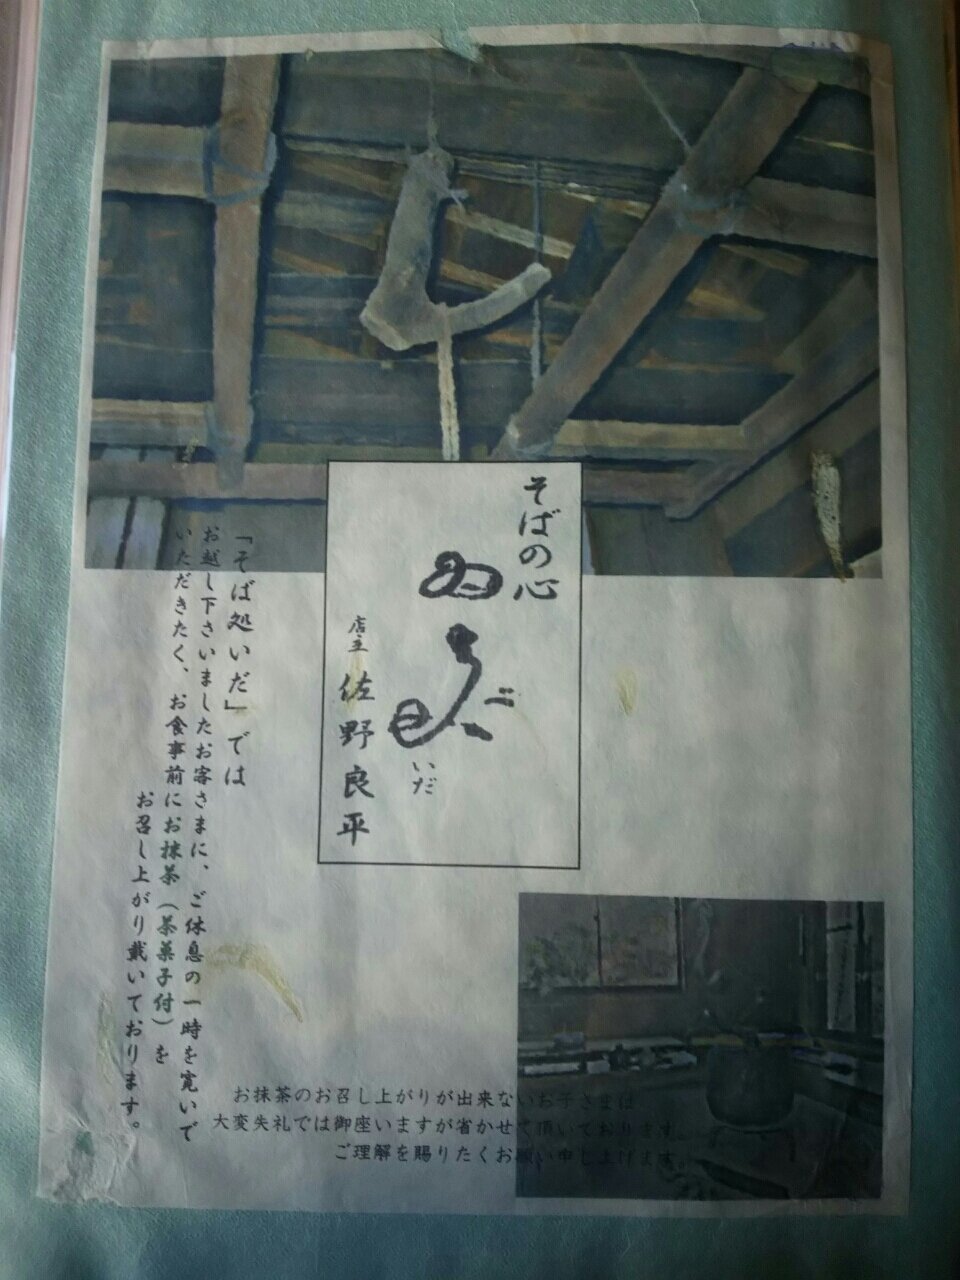 そばの心
いだ
店主 佐野良平
「そば処いだ」では
お越し下さいましたお客さまに、ご休息の一時を寛いで
いただきたく、お食事前にお抹茶(茶菓子付)を
お召し上がり戴いております。
お抹茶のお召し上がりが出来ないお子さまは
大変失礼では御座いますが省かせて頂いております。
ご理解を賜りたくお願い申し上げます。